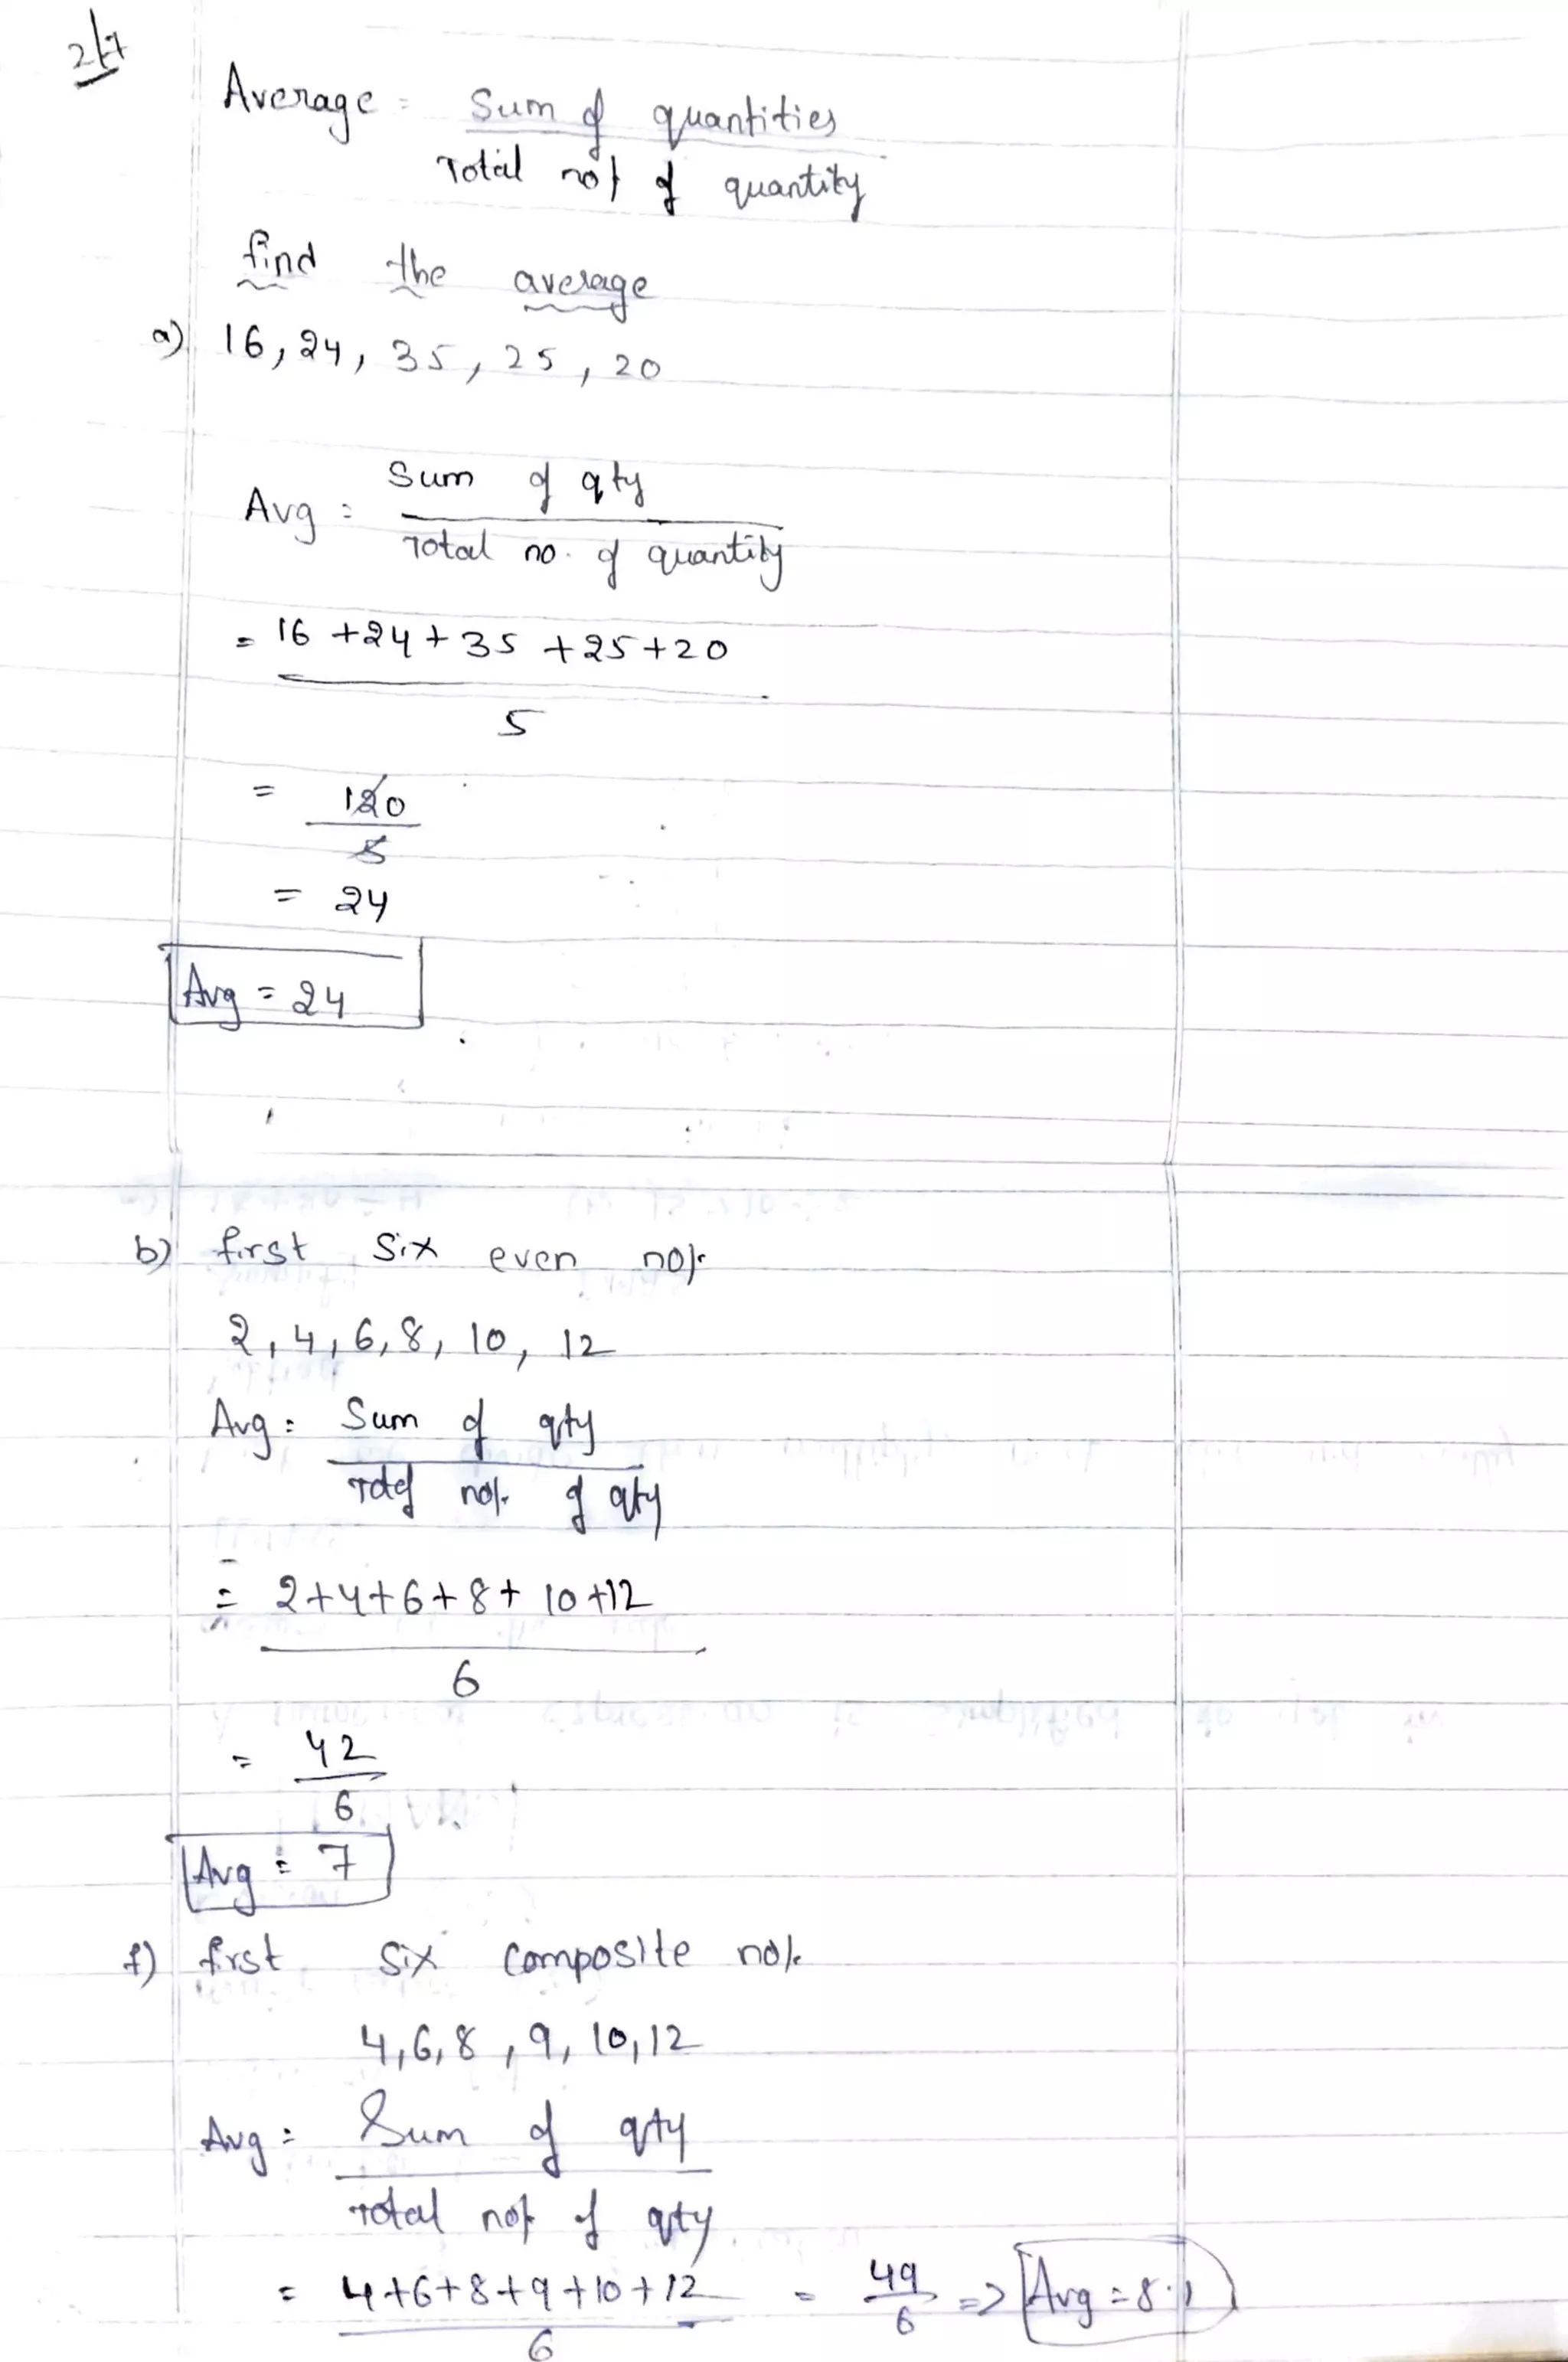 2/7
Average = Sum of quantities
Total no/. of quantity
find the average
a) 16, 24, 35, 25, 20
Avg = Sum of qty
Total no. of quantity
= 16 + 24 + 35 + 25 + 20
5
= 120
5
= 24
Avg = 24
b) first six even no/.
2, 4, 6, 8, 10, 12
Avg = Sum of qty
Total no/. of qty
= 2+4+6+8+ 10 +12
6
= 42
6
Avg = 7
f) first six composite no/.
4, 6, 8, 9, 10, 12
Avg = Sum of qty
Total no/. of qty
= 4+6+8+9+10+12 = 49 => Avg = 8.1
6 6